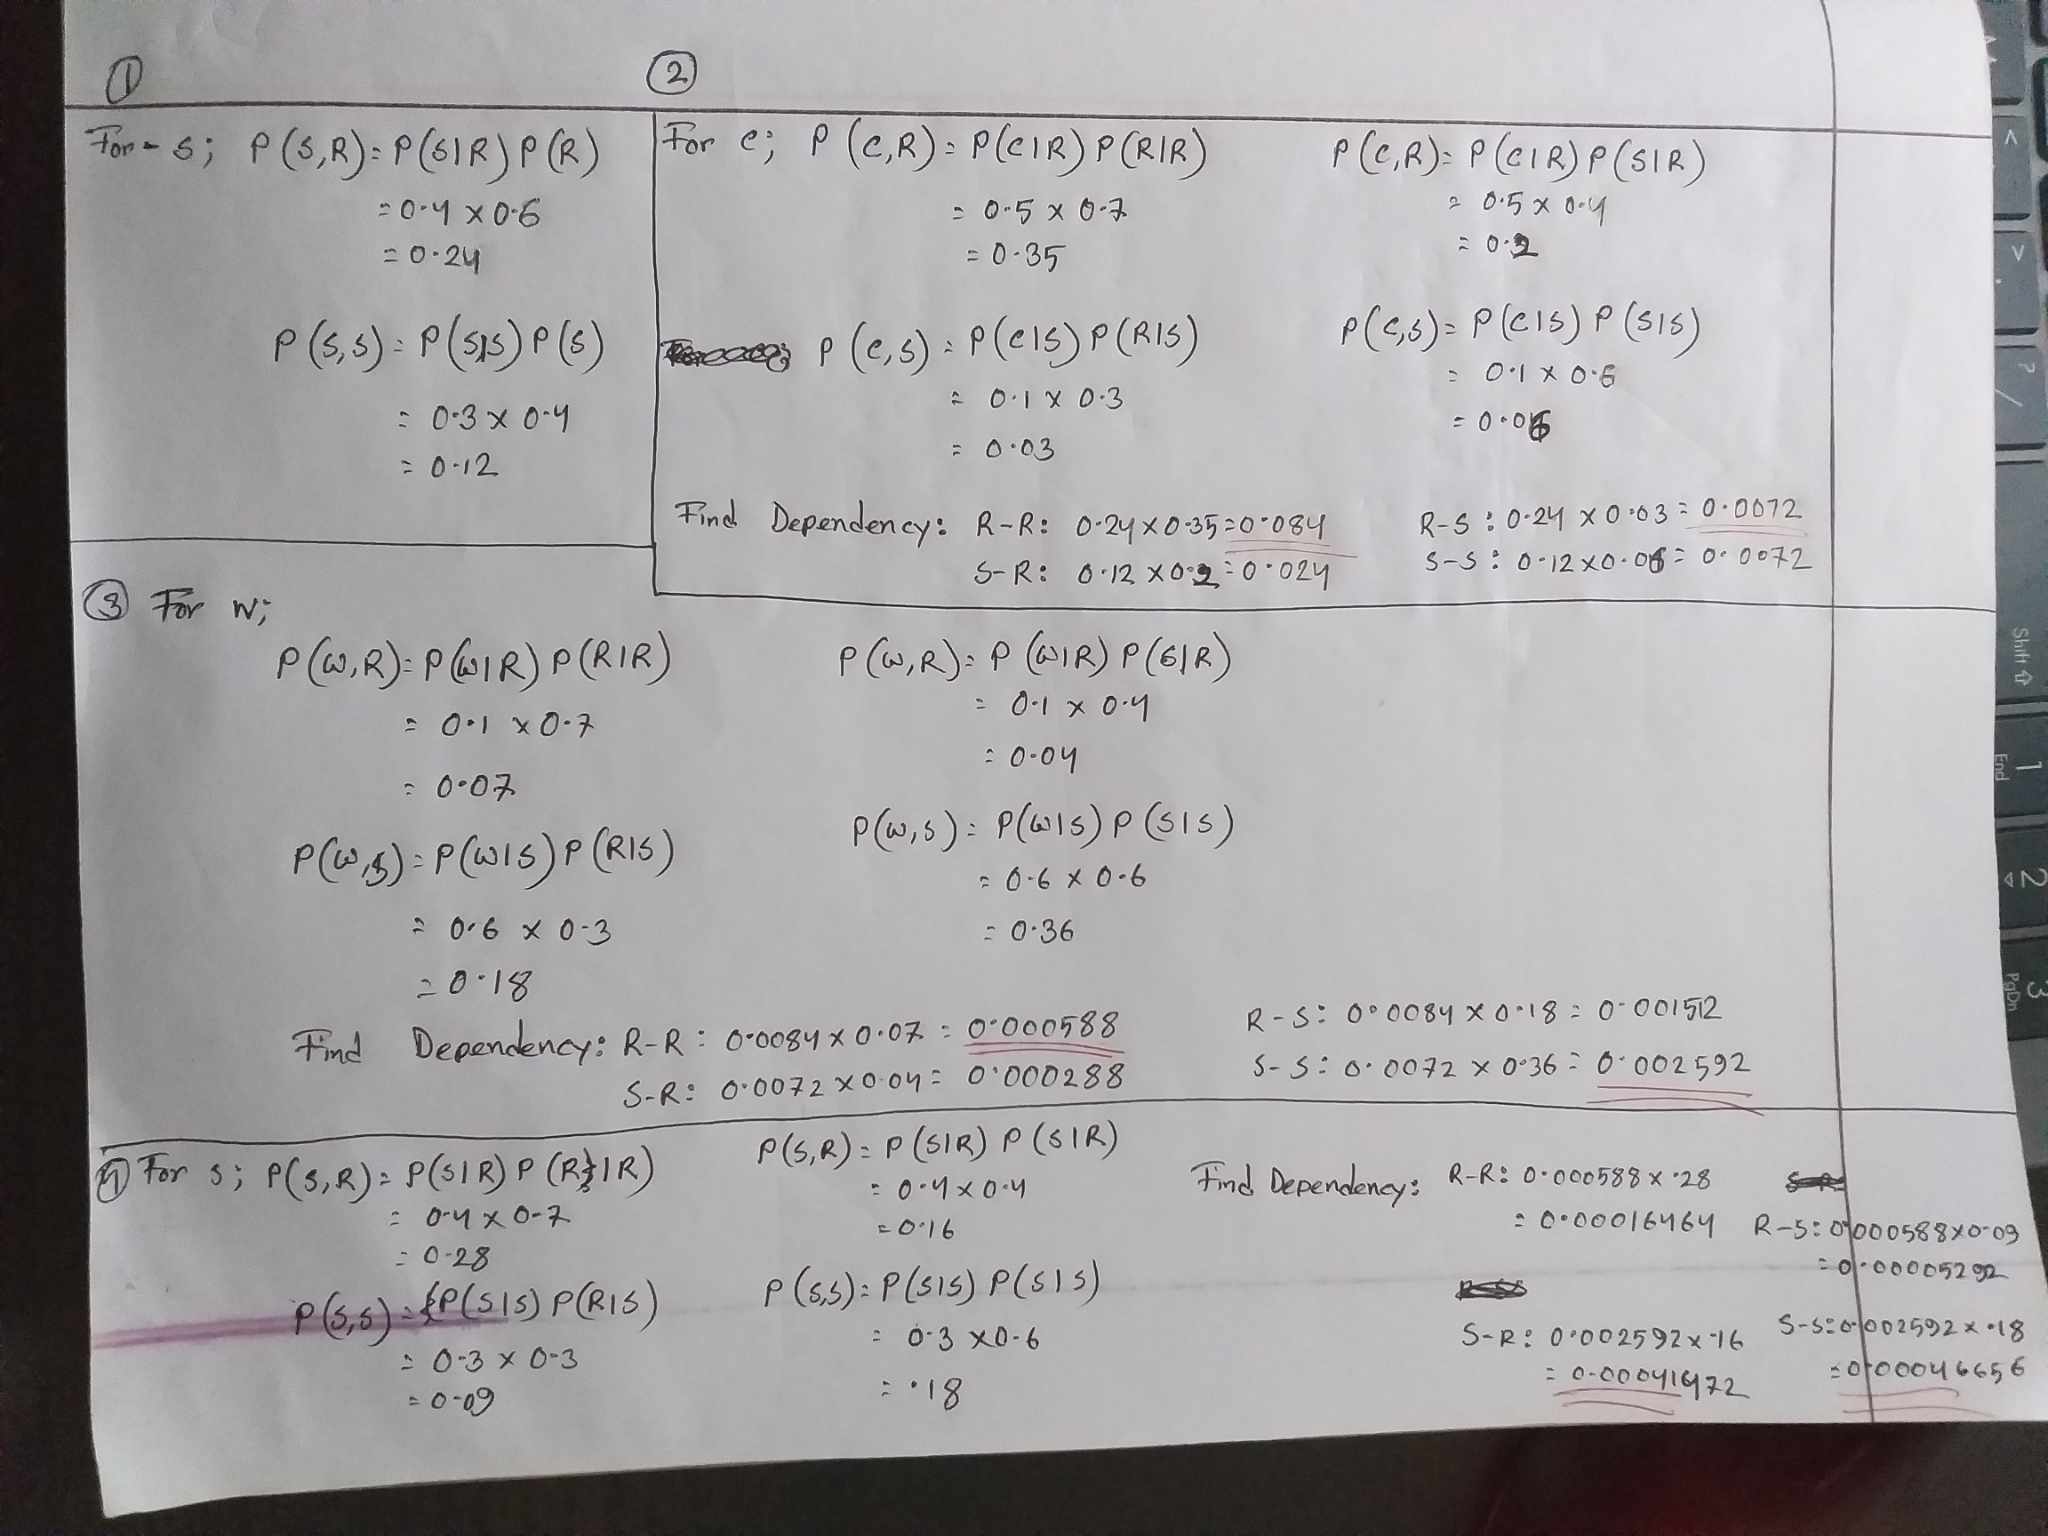 ①
For - S; P(S,R) = P(S|R) P(R)
= 0.4 x 0.6
= 0.24
P(S,S) = P(S|S) P(S)
= 0.3 x 0.4
= 0.12
②
For C; P(C,R) = P(C|R) P(R|R)
= 0.5 x 0.7
= 0.35
P(C,S) = P(C|S) P(R|S)
= 0.1 x 0.3
= 0.03
P(C,R) = P(C|R) P(S|R)
= 0.5 x 0.4
= 0.2
P(C,S) = P(C|S) P(S|S)
= 0.1 x 0.6
= 0.06
Find Dependency: R-R: 0.24 x 0.35 = 0.084
S-R: 0.12 x 0.2 = 0.024
R-S: 0.24 x 0.03 = 0.0072
S-S: 0.12 x 0.06 = 0.0072
③ For W;
P(W,R) = P(W|R) P(R|R)
= 0.1 x 0.7
= 0.07
P(W,S) = P(W|S) P(R|S)
= 0.6 x 0.3
= 0.18
P(W,R) = P(W|R) P(S|R)
= 0.1 x 0.4
= 0.04
P(W,S) = P(W|S) P(S|S)
= 0.6 x 0.6
= 0.36
Find Dependency: R-R: 0.0084 x 0.07 = 0.000588
S-R: 0.0072 x 0.04 = 0.000288
R-S: 0.0084 x 0.18 = 0.001512
S-S: 0.0072 x 0.36 = 0.002592
④ For S; P(S,R) = P(S|R) P(R|R)
= 0.4 x 0.7
= 0.28
P(S,S) = P(S|S) P(R|S)
= 0.3 x 0.3
= 0.09
P(S,R) = P(S|R) P(S|R)
= 0.4 x 0.4
= 0.16
P(S,S) = P(S|S) P(S|S)
= 0.3 x 0.6
= .18
Find Dependency: R-R: 0.000588 x .28
= 0.00016464
R-S: 0.000588 x 0.09
= 0.00005292
S-R: 0.002592 x .16
= 0.00041472
S-S: 0.002592 x .18
= 0.00046656
Shift ⇧
1
End
2
3
PgDn